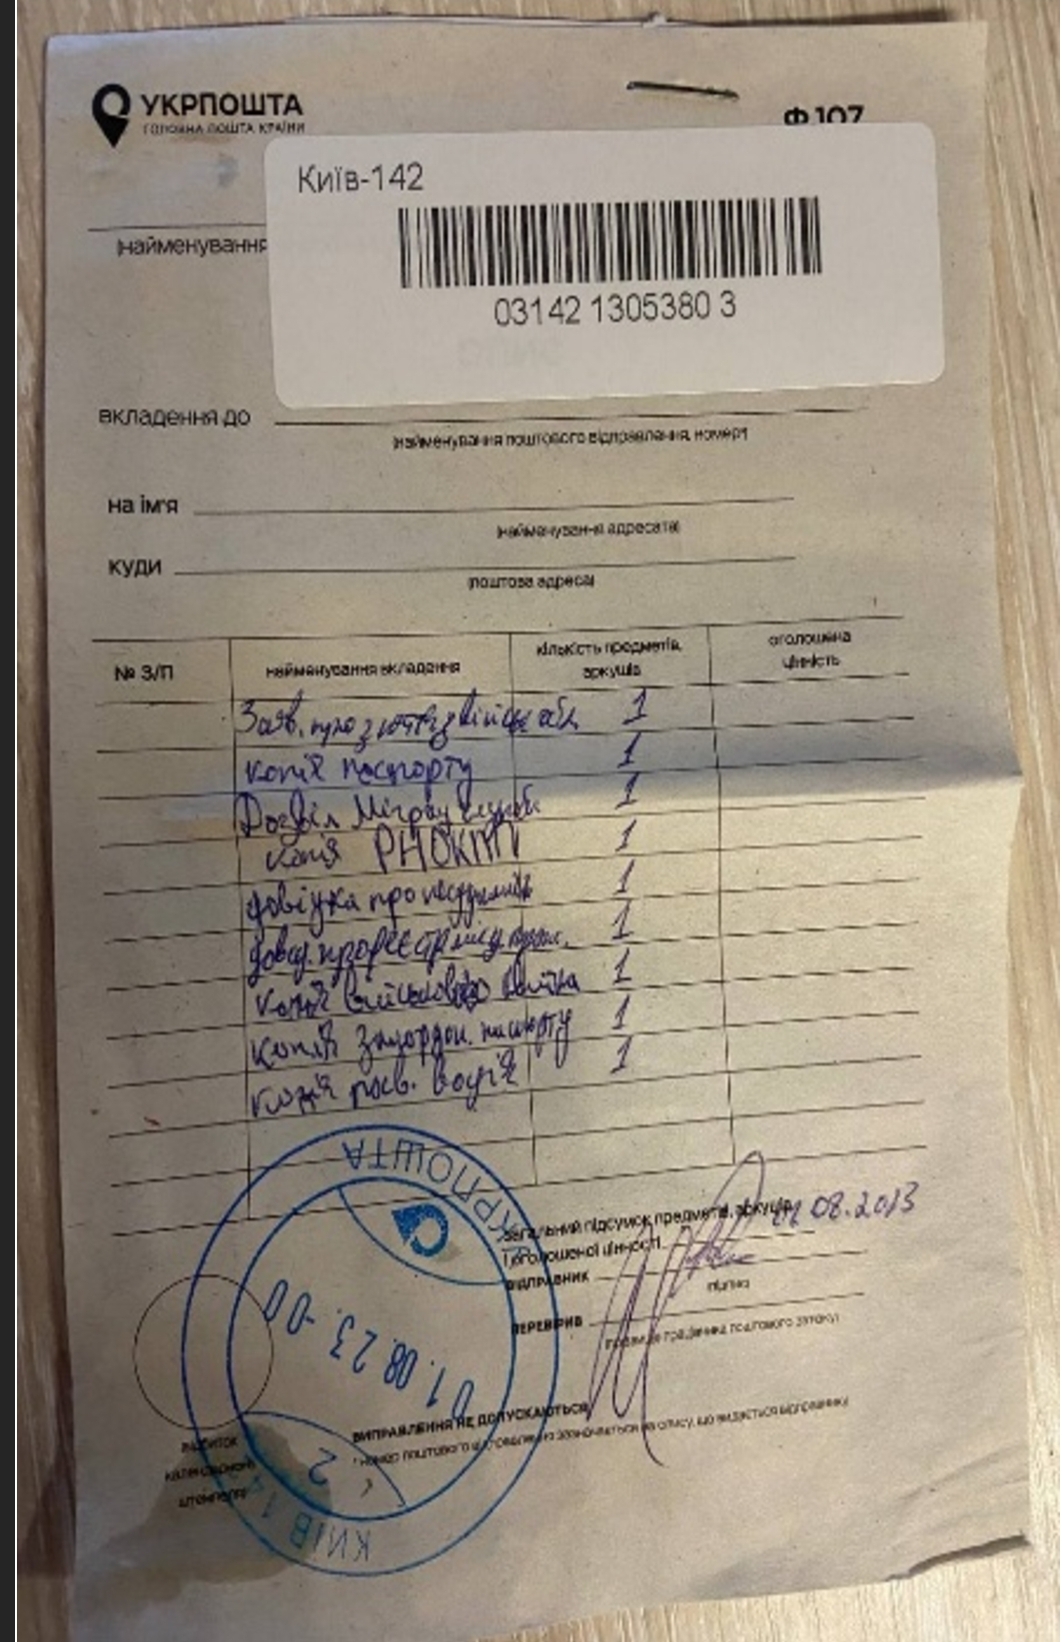 УКРПОШТА
ГОЛОВНА ПОШТА КРАЇНИ
Ф.107
Київ-142
03142 1305380 3
(найменування
вкладення до
(найменування поштового відправлення, номер*)
на ім'я
(найменування адресата)
куди
(поштова адреса)
№ З/П найменування вкладення кількість предметів, аркушів оголошена цінність
Заяв. про з військ обл 1
копія паспорту 1
Дозвіл Міграц служби 1
копія РНОКПП 1
довідка про несудимість 1
довід. про реєстр місц прож. 1
копія військового квитка 1
копія закордон. паспорту 1
копія посв. водія 1
Загальний підсумок предметів, аркушів
і оголошеної цінності
08.2013
ВІДПРАВНИК
підпис
ПЕРЕВІРИВ
(прізвище працівника поштового зв'язку)
ВИПРАВЛЕННЯ НЕ ДОПУСКАЮТЬСЯ
* номер поштового відправлення зазначається на описі, що видається відправнику
відбиток
календарного
штемпеля
УКРПОШТА
01.08.23.-00
2
КИЇВ 14